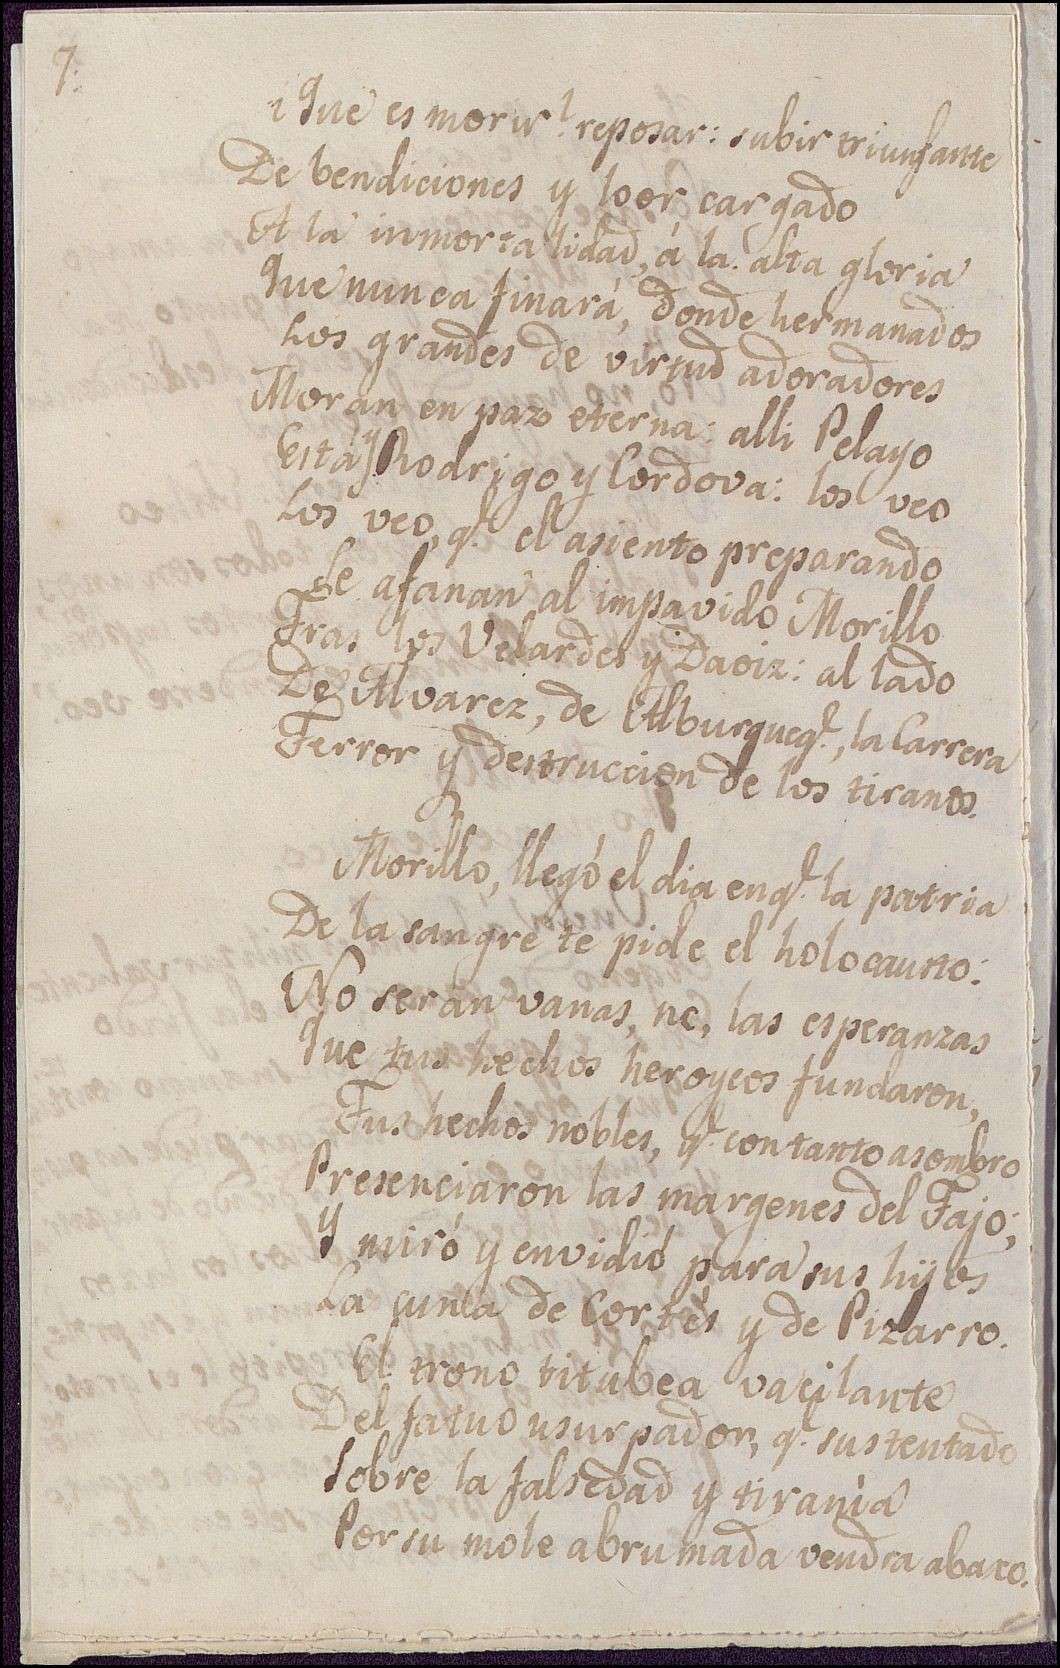 7.
¿Que es morir? reposar: subir triunfante
De bendiciones y loor cargado
A la inmortalidad, á la alta gloria
Que nunca finará, donde hermanados
Los grandes de virtud adoradores
Moran en paz eterna: alli Pelayo
Está, y Rodrigo y Cordova: los veo
Los veo, q.e el asiento preparando
Se afanan al impavido Morillo
Tras los Velardes y Daoiz: al lado
De Alvarez, de Alburqueq.e, la Carrera
Terror y destruccion de los tiranos.
Morillo, llegó el dia en q.e la patria
De la sangre te pide el holocausto:
No serán vanas, no, las esperanzas
Que tus hechos heroycos fundaron,
Tus hechos nobles, q.e con tanto asombro
Presenciaron las margenes del Tajo;
Y miró y envidió para sus hijos
La cuna de Cortés y de Pizarro.
El trono titubea vacilante
Del fatuo usurpador, q.e sustentado
Sobre la falsedad y tirania
Por su mole abrumada vendra abaxo.